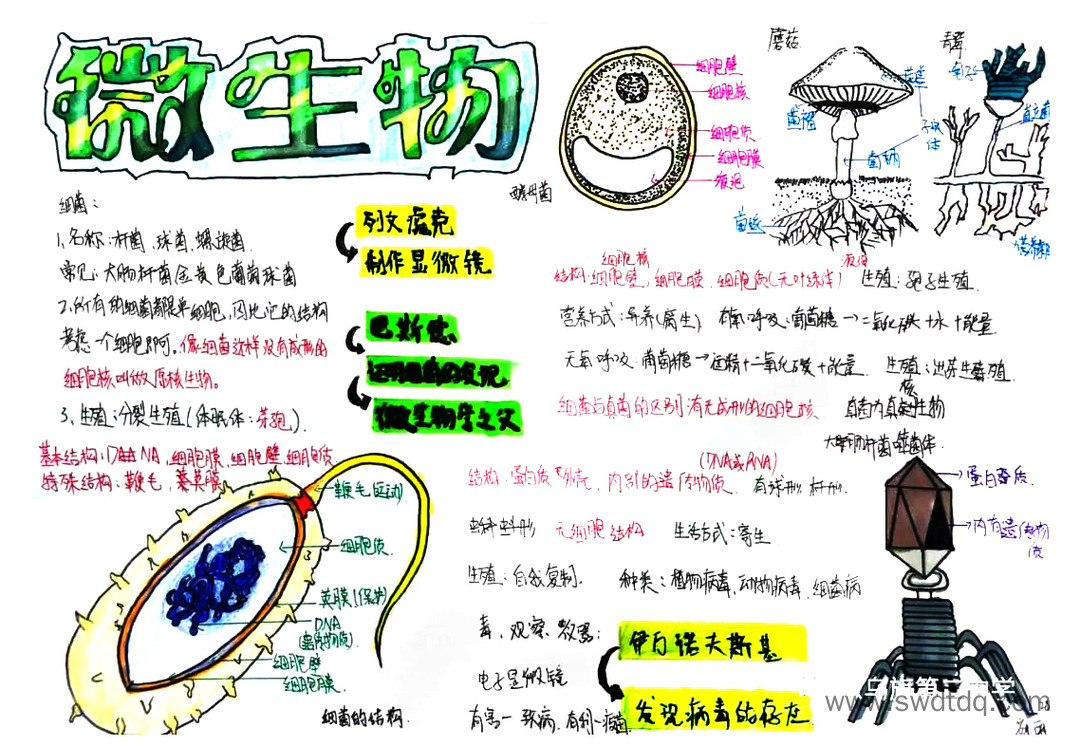 微生物
细菌:
1、名称:杆菌、球菌、螺旋菌
常见:大肠杆菌金黄色葡萄球菌
2、所有的细菌都是单细胞,因此它的结构
考虑一个细胞即可。像细菌这样没有成形的
细胞核叫做原核生物。
3、生殖:分裂生殖(休眠体:芽孢)
列文虎克
制作显微镜
巴斯德
证明细菌的发现
微生物学之父
基本结构:DNA,细胞膜,细胞壁,细胞质
特殊结构:鞭毛,荚膜
鞭毛(运动)
细胞质
荚膜(保护)
DNA
(遗传物质)
细胞壁
细胞膜
细菌的结构
细胞壁
细胞核
细胞质
细胞膜
液泡
酵母菌
蘑菇
菌盖
菌褶
子实体
菌柄
菌丝
青霉
孢子
直立菌
细胞核
液泡
结构:细胞壁,细胞膜,细胞质(无叶绿体) 生殖:孢子生殖
营养方式:异养(腐生) 有氧呼吸:葡萄糖→二氧化碳+水+能量
无氧呼吸:葡萄糖→酒精+二氧化碳+能量 生殖:出芽生殖
细菌与真菌的区别:有无成形的细胞核 真菌为真核生物
大肠杆菌噬菌体
(DNA或RNA)
结构:蛋白质外壳,内部的遗传物质 有球形,杆形,
蝌蚪形 无细胞结构 生活方式:寄生
生殖:自我复制. 种类:植物病毒,动物病毒,细菌病
毒,观察仪器:
电子显微镜
有害—致病,有利—疫苗
伊万诺夫斯基
发现病毒的存在
蛋白质
内有遗传物质
www.swdtdq.com